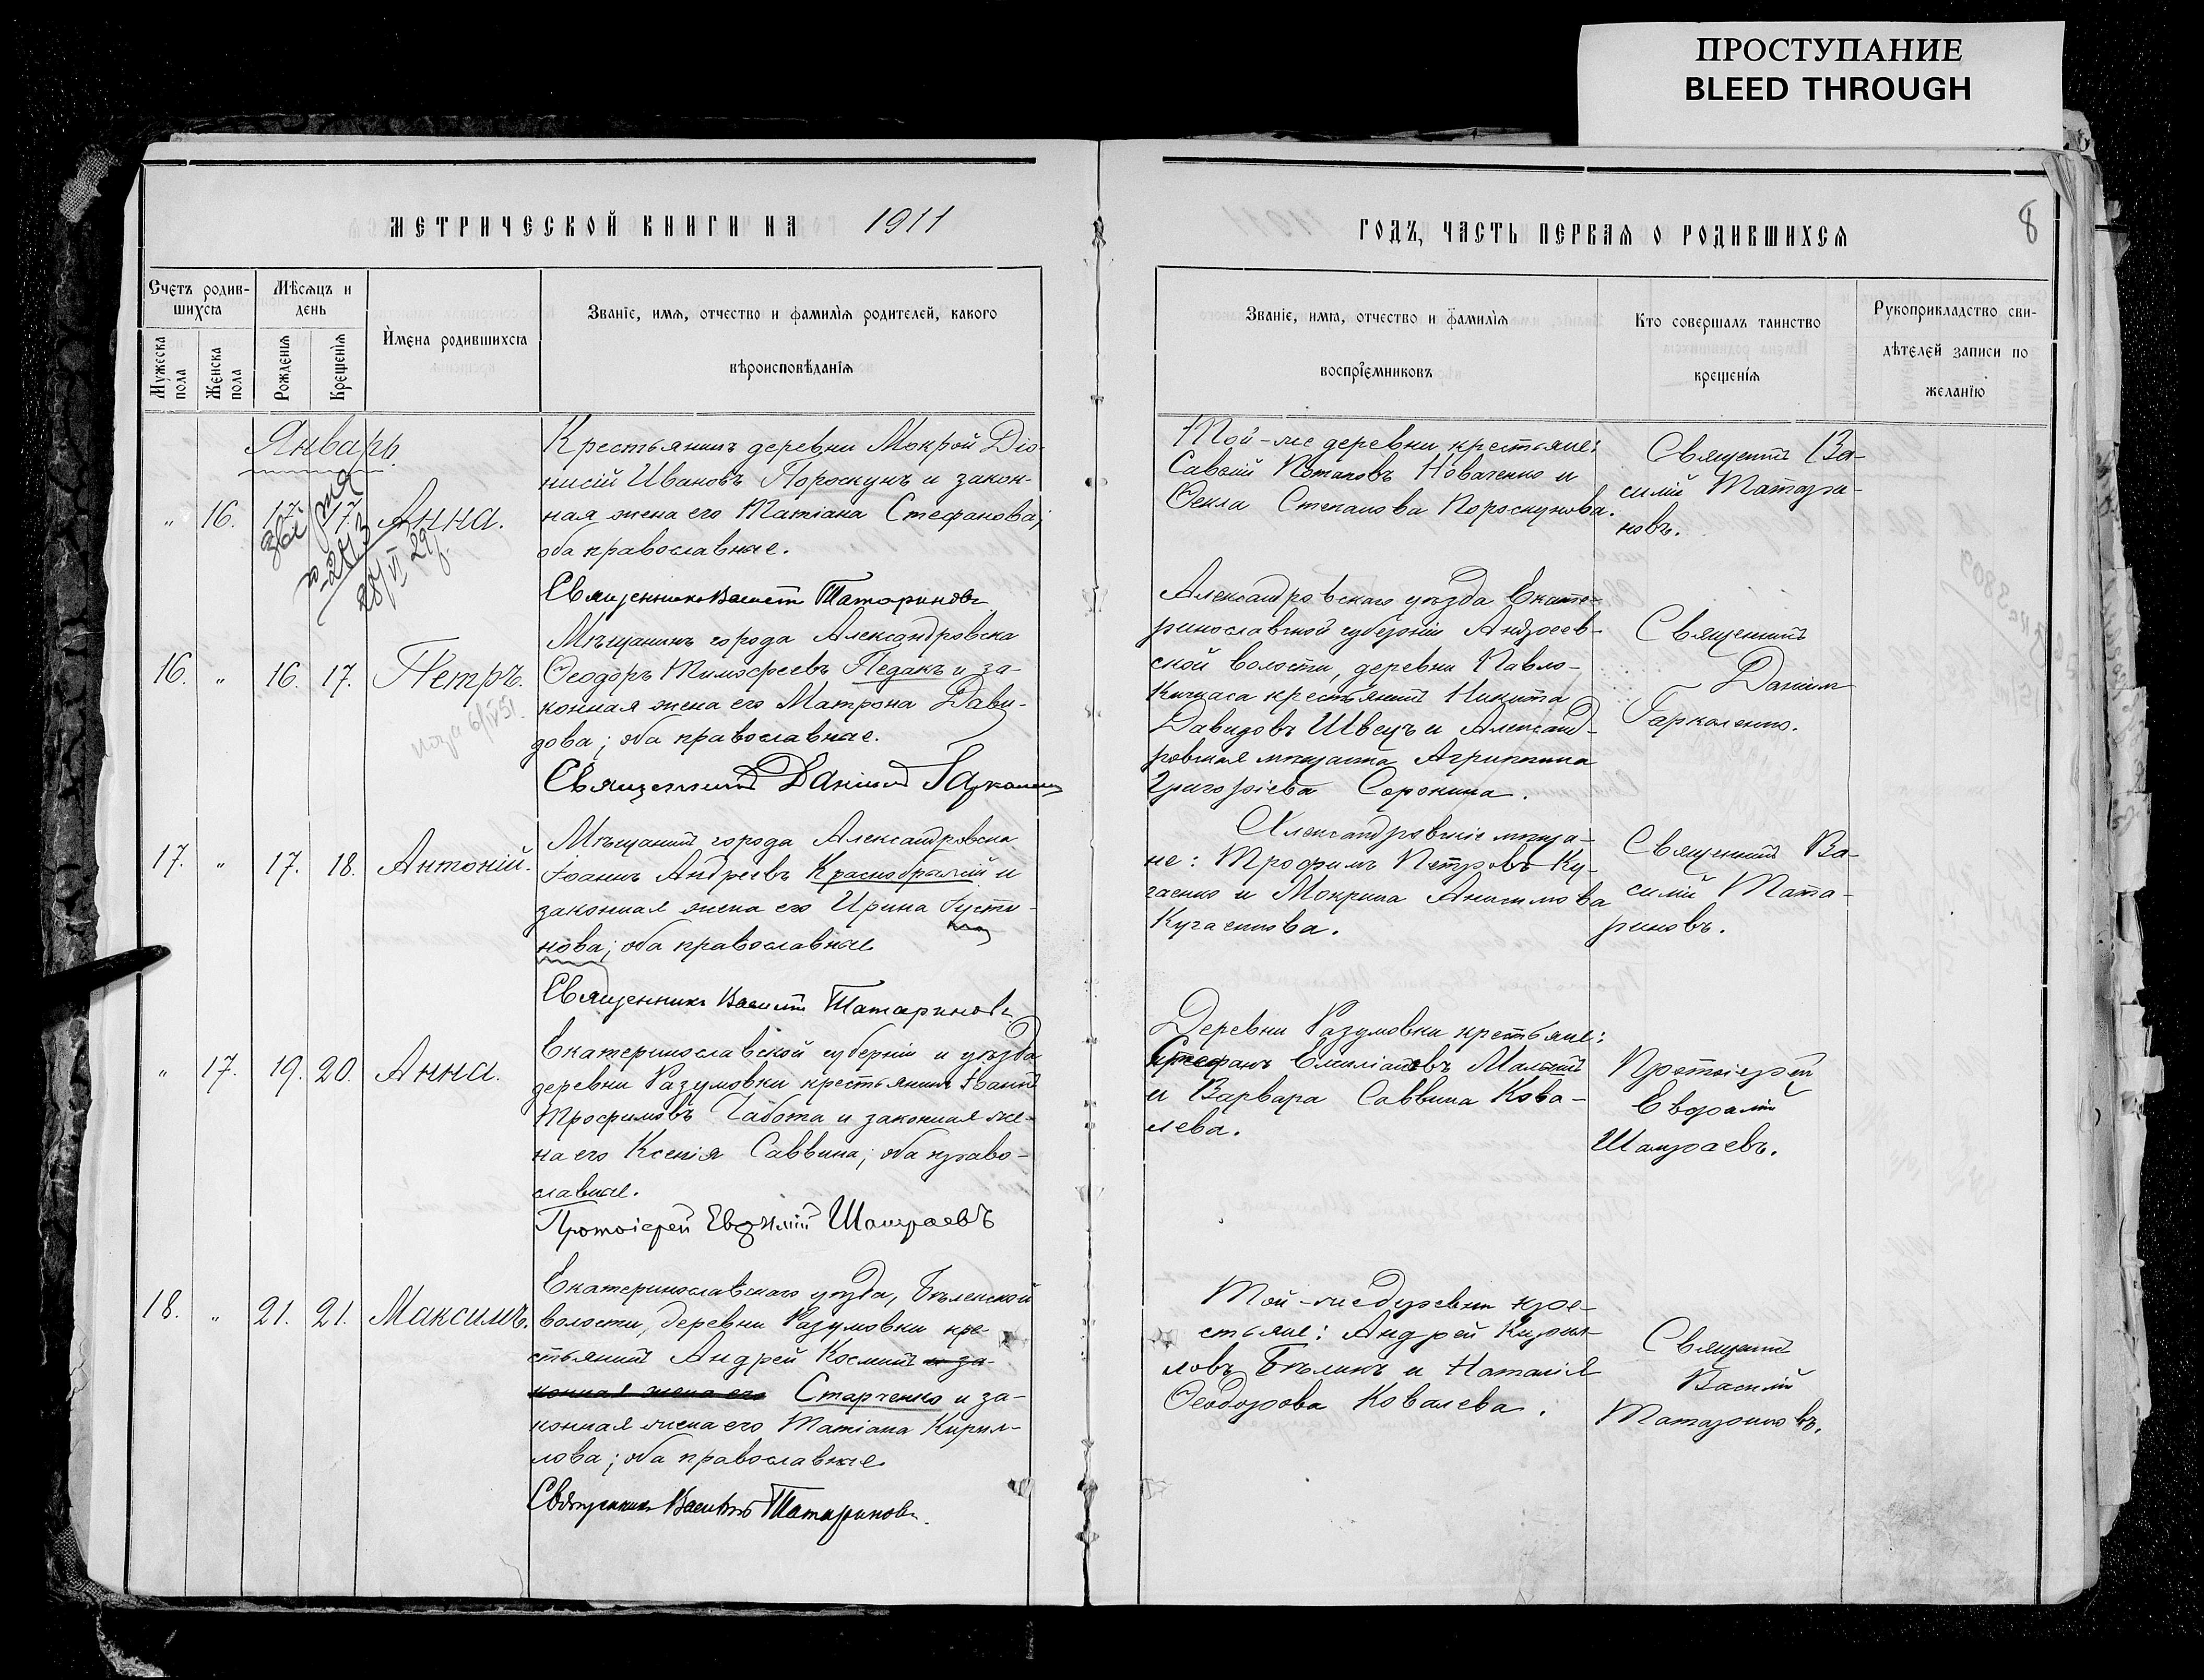 ПРОСТУПАНИЕ
BLEED THROUGH
МЕТРИЧЕСКОЙ КНИГИ НА 1911
ГОДЪ, ЧАСТЬ ПЕРВАЯ О РОДИВШИХСЯ
8
Счетъ родив-
шихся
Мужеска пола
Женска пола
Мѣсяцъ и
день
Рожденія
Крещенія
Имена родившихся
Званіе, имя, отчество и фамилія родителей, какого
вѣроисповѣданія
Званіе, имя, отчество и фамилія
воспріемниковъ
Кто совершалъ таинство
крещенія
Рукоприкладство сви-
дѣтелей записи по
желанію
Январь.
„ 16. 17. 17. Анна.
28/VI 29 г.
Крестьянинъ деревни Мокрой Діо-
нисій Ивановъ Пороскунъ и закон-
ная жена его Татіана Стефанова;
оба православные.
Священникъ Василій Татариновъ
Той-же деревни крестьяне:
Саввій Потаповъ Новаченко и
Ѳекла Степанова Пороскунова.
Священникъ Ва-
силій Татари-
новъ.
16. „ 16. 17. Петръ.
Мѣщанинъ города Александровска
Ѳеодоръ Тимоѳеевъ Педакъ и за-
конная жена его Матрона Дави-
дова; оба православные.
Священникъ Даніилъ Гаркаленко
Александровскаго уѣзда Екате-
ринославской губерніи Андреев-
ской волости, деревни Павло-
Кичкаса крестьянинъ Никита
Давидовъ Швецъ и Александ-
ровская мѣщанка Агриппина
Григоріева Сорокина.
Священникъ
Даніилъ
Гаркаленко.
17. „ 17. 18. Антоній.
Мѣщанинъ города Александровска
Іоаннъ Андреевъ Краснобрыжій и
законная жена его Ирина Іусти-
нова; оба православные
Священникъ Василій Татариновъ
Александровскіе мѣща-
не: Трофимъ Петровъ Ку-
чаенко и Мокрина Анисимова
Кучаенкова.
Священникъ Ва-
силій Тата-
риновъ.
„ 17. 19. 20. Анна.
Екатеринославской губерніи и уѣзда
деревни Разумовки крестьянинъ Іоаннъ
Трофимовъ Чабота и законная же-
на его Ксенія Саввина; оба право-
славные.
Протоіерей Евфимій Шамраевъ
Деревни Разумовки крестьяне:
Стефанъ Емиліановъ Малый
и Варвара Саввина Кова-
лева.
Протоіерей
Евфимій
Шамраевъ.
18. „ 21. 21. Максимъ.
Екатеринославскаго уѣзда, Бѣленской
волости, деревни Разумовки кре-
стьянинъ Андрей Косминъ и за-
конная жена его Старченко и за-
конная жена его Татіана Кирил-
лова; оба православные
Священникъ Василій Татариновъ.
Той-же деревни кре-
стьяне: Андрей Кирил-
ловъ Бѣликъ и Наталія
Ѳеодорова Ковалева.
Священникъ
Василій
Татариновъ.